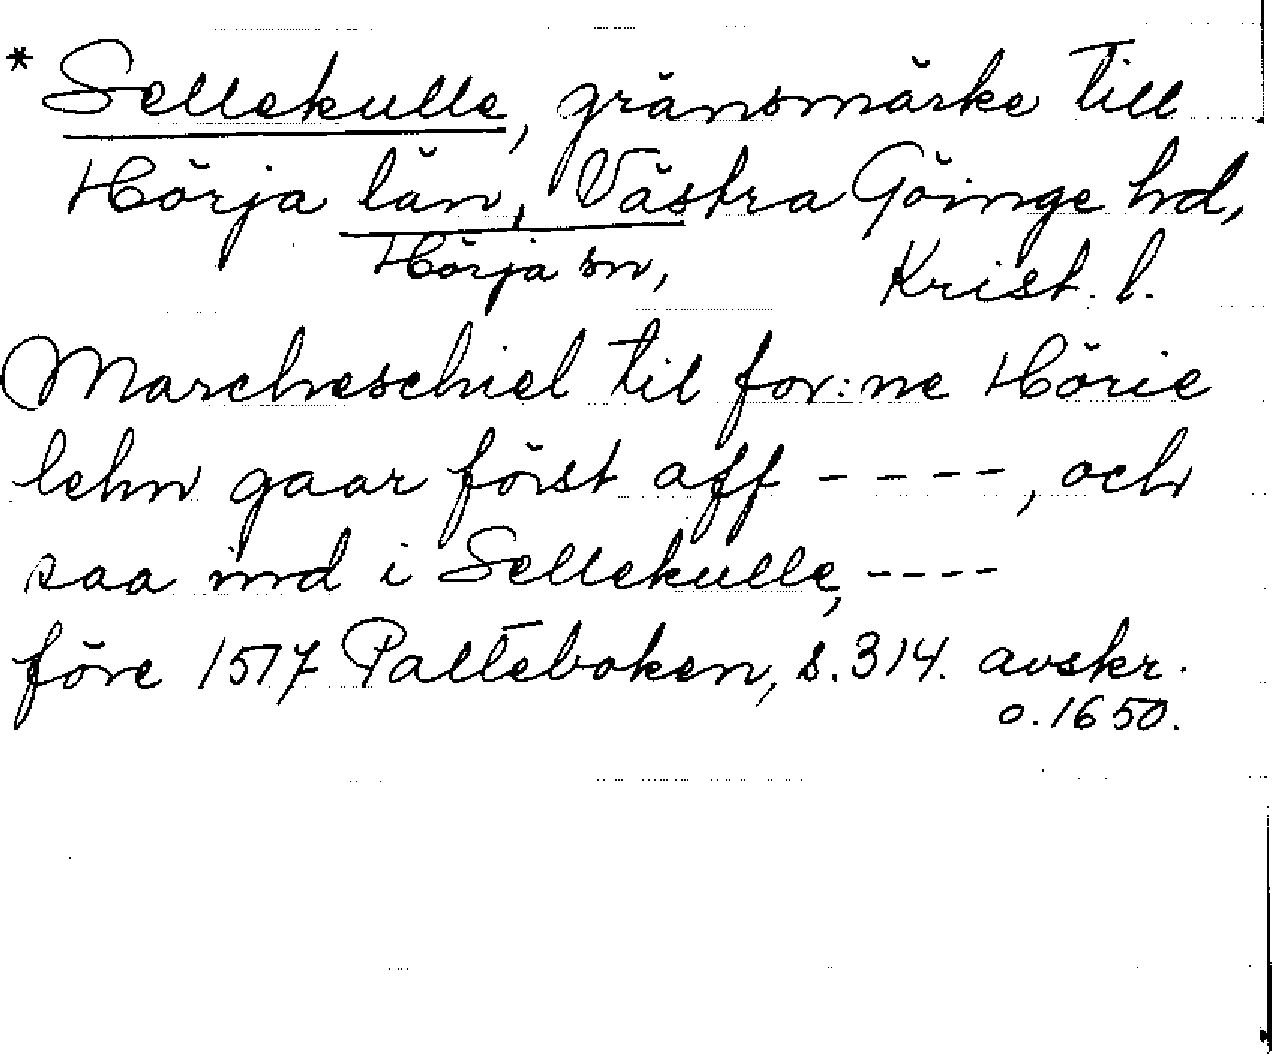 * Sellekulle, gränsmärke till
Hörja län, Västra Göinge hd,
Hörja sn, Krist. l.
Marcheschiel til for:ne Hörie
lehn gaar först aff ----, och
saa ind i Sellekulle, ----
före 1517 Palteboken, s. 314. avskr.
o. 1650.